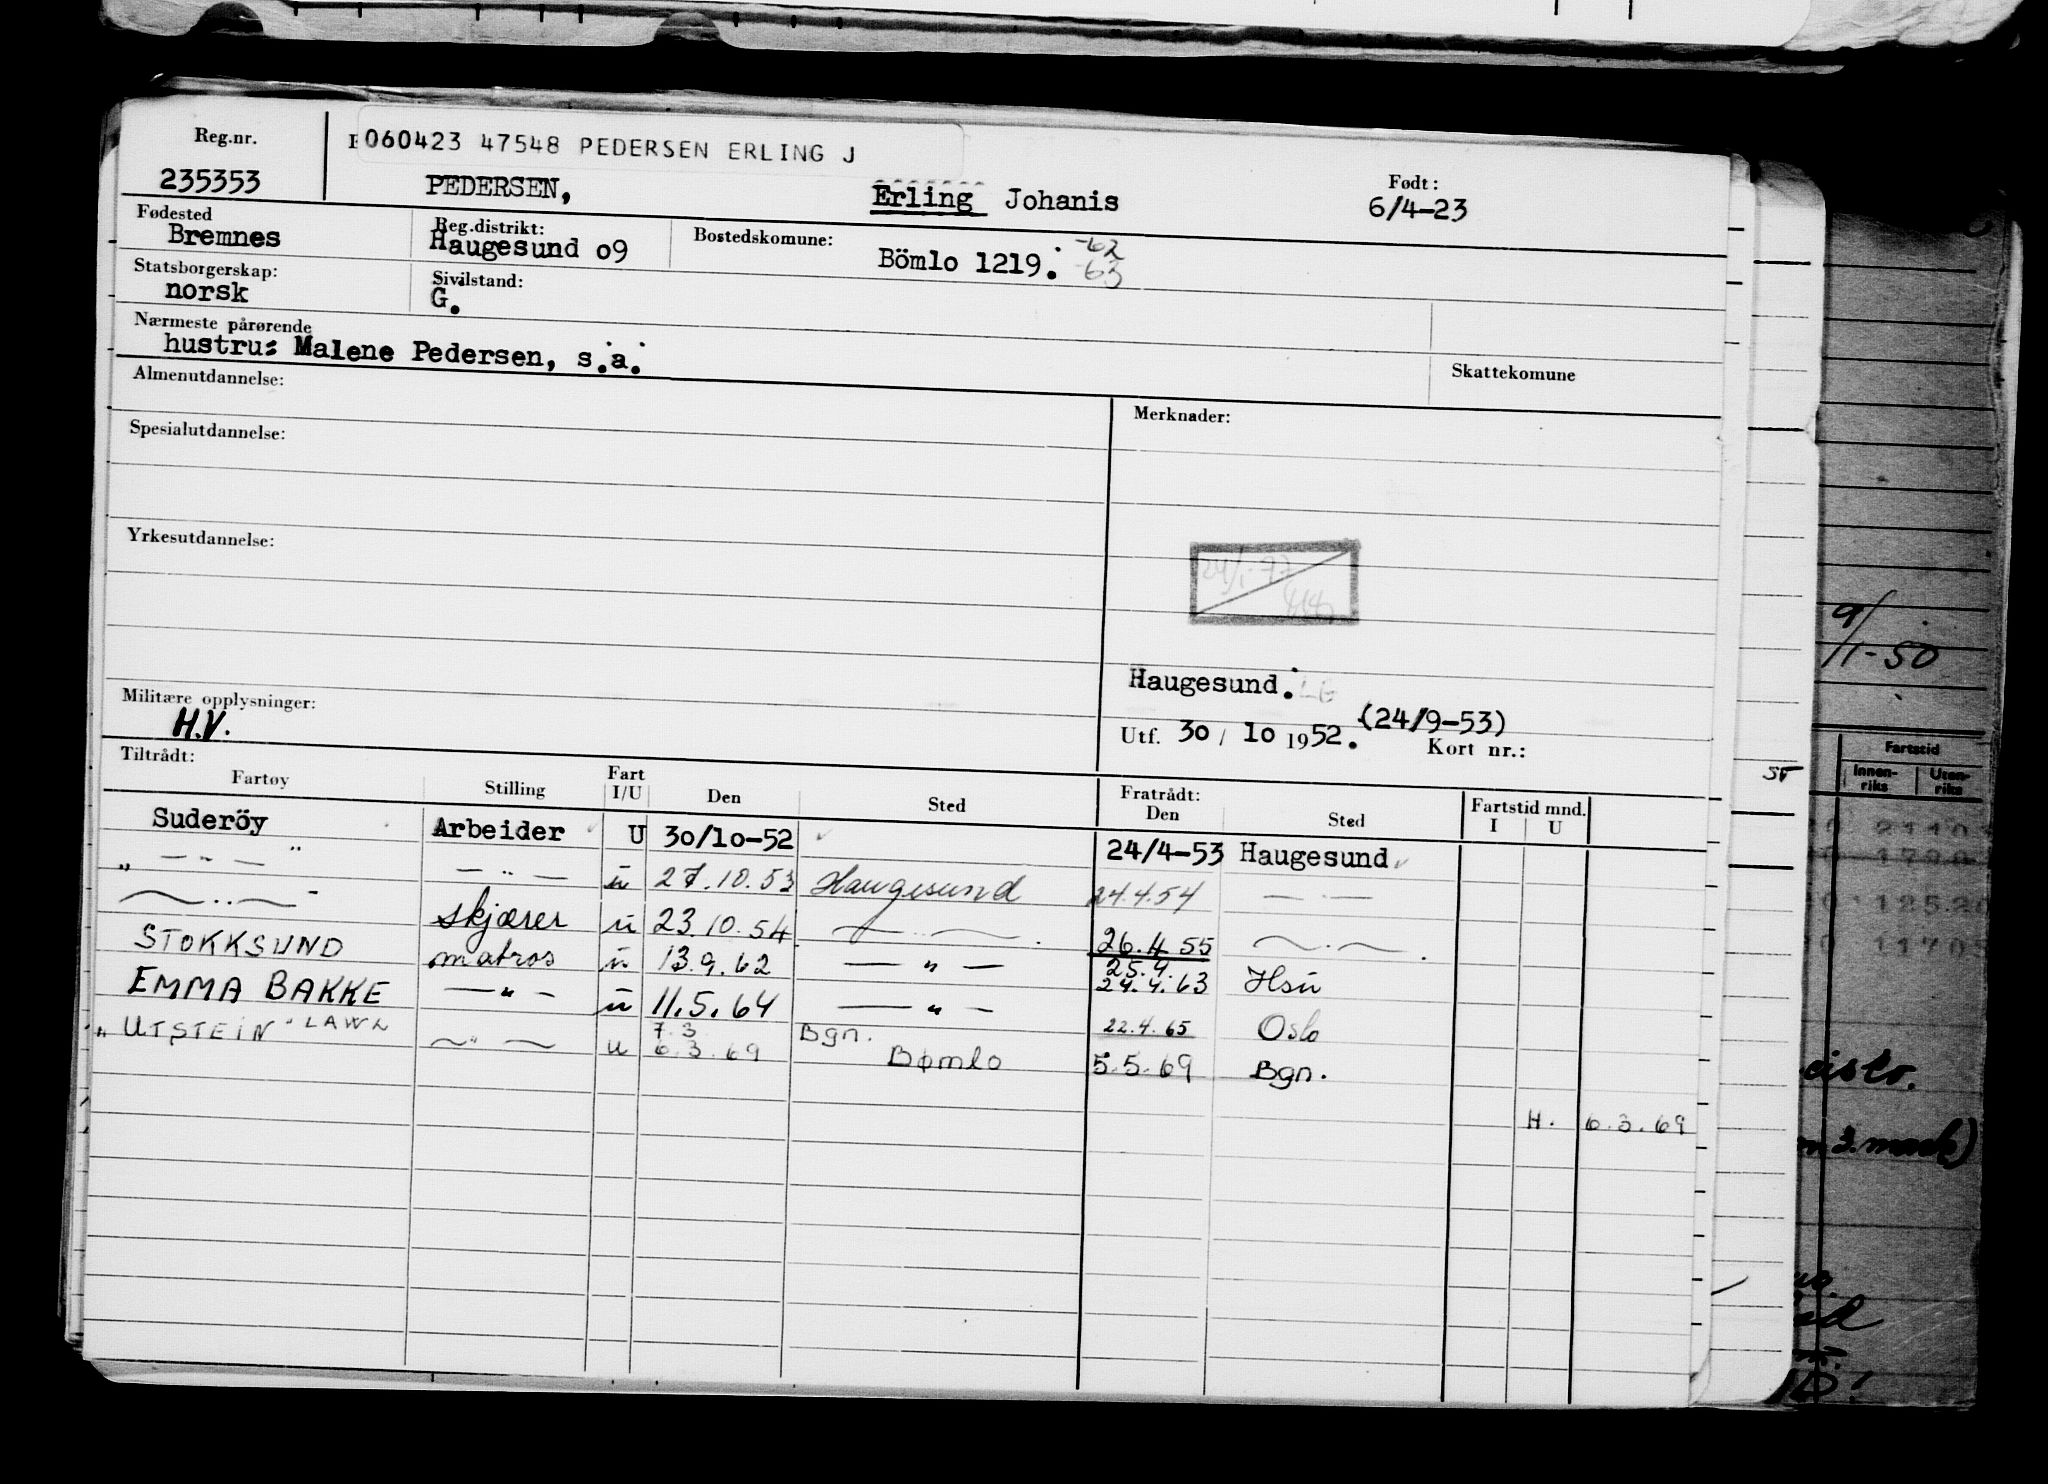 Reg.nr.
060423 47548 PEDERSEN ERLING J
235353 PEDERSEN, Erling Johanis Født: 6/4-23
Fødested Reg.distrikt: Bostedskomune:
Bremnes Haugesund o9 Bömlo 1219. -62 -63
Statsborgerskap: Sivilstand:
norsk G.
Nærmeste pårørende
hustru: Malene Pedersen, s.a. Skattekomune
Almenutdannelse: Merknader:
Spesialutdannelse:
Yrkesutdannelse:
Haugesund.
Militære opplysninger: (24/9-53)
H.V. Utf. 30/ 10 1952. Kort nr.:
Tiltrådt: Fratrådt:
Fartøy Stilling Fart I/U Den Sted Den Sted Fartstid mnd. I U
Suderöy Arbeider U 30/10-52 24/4-53 Haugesund
" — " — " — " — u 27.10.53 Haugesund 24.4.54 — " —
— " — " skjærer u 23.10.54 — " — 26.4.55 — " —
STOKKSUND matros u 13.9.62 — " — 25.4. 24.4.63 Hsu
EMMA BAKKE — " — u 11.5.64 — " — 22.4.65 Oslo
" UTSTEIN " LAWR — " — u 7.3 6.3.69 Bgn. Bømlo 5.5.69 Bgn.
H. 6.3.69
9/1-50
Fartstid
Innen-riks Uten-riks